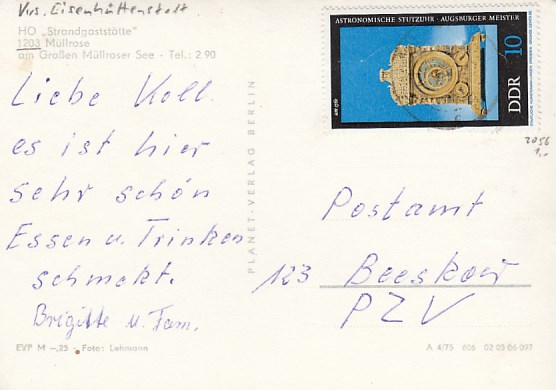 Krs. Eisenhüttenstadt
HO „Strandgaststätte"
1203 Müllrose
am Großen Müllroser See - Tel.: 2 90
Liebe Koll.
es ist hier
sehr schön
Essen u. Trinken
schmekt.
Brigitte u. Fam.
EVP M –,25 · Foto: Lehmann
PLANET-VERLAG BERLIN
ASTRONOMISCHE STUTZUHR · AUGSBURGER MEISTER
DDR 10
2056
1,-
Postamt
123 Beeskow
PZV
A 4/75 606 02 03 06 097